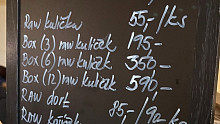 RAW kulička 55-/ks
Box (3) raw kuliček 195-
Box (6) raw kuliček 350-
Box (12) raw kuliček 590-
RAW dort 85-/
RAW